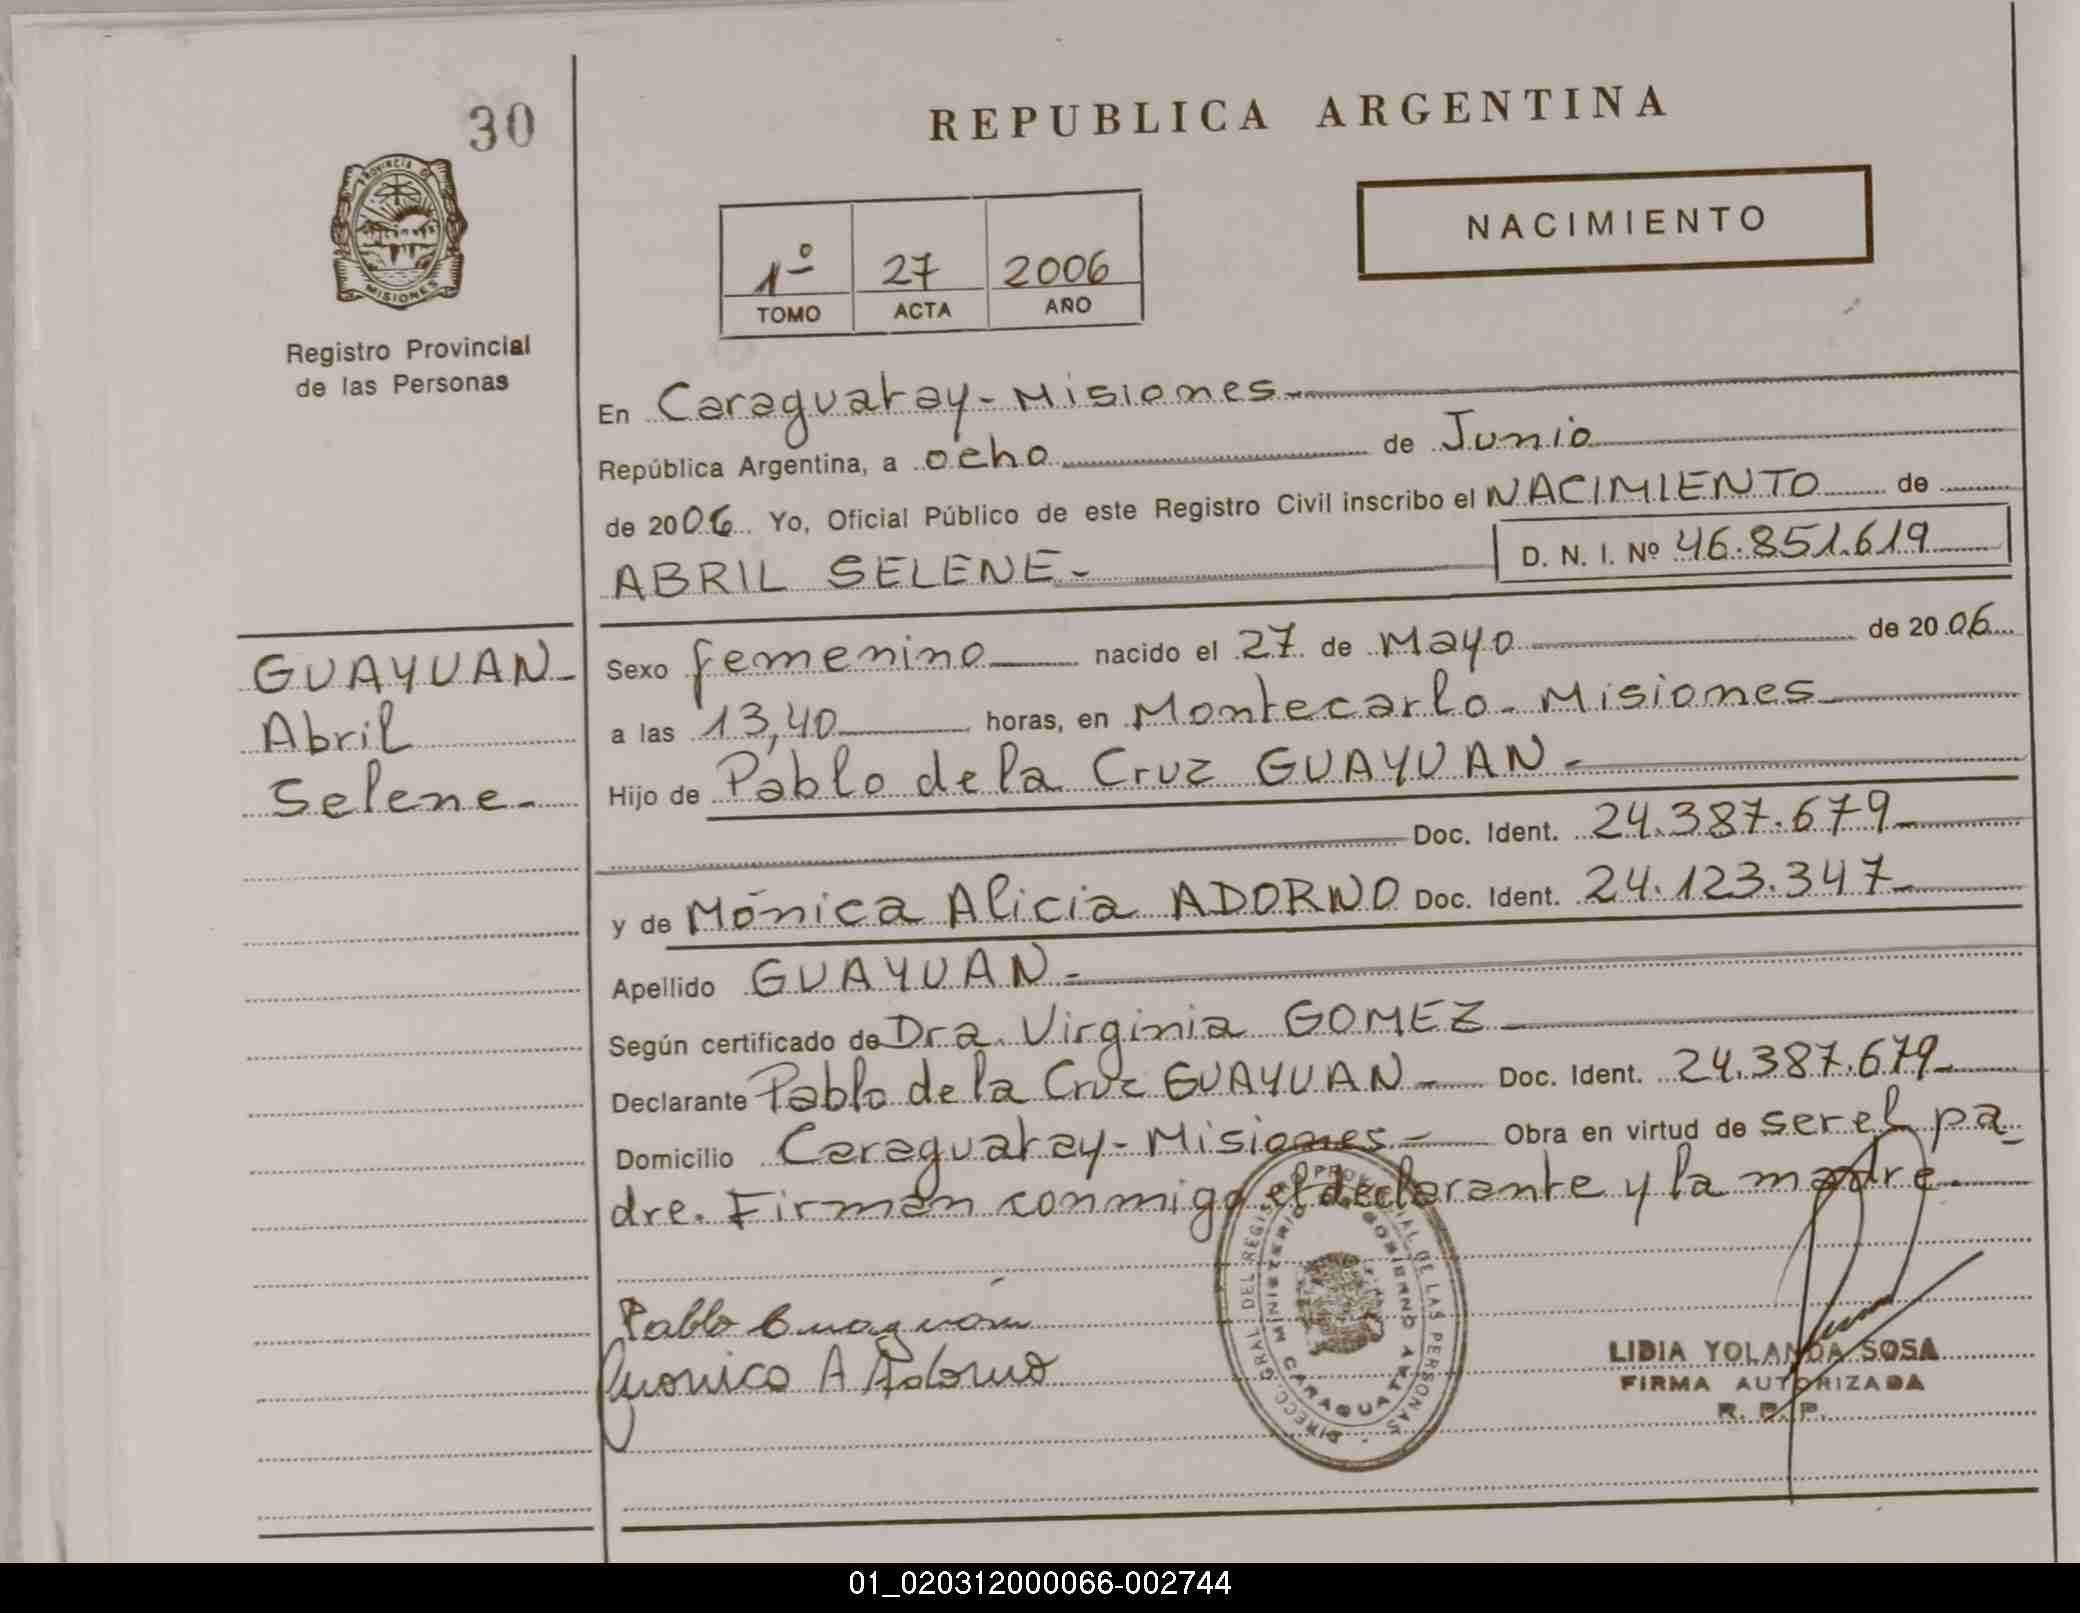 30
REPUBLICA ARGENTINA
PROVINCIA DE
MISIONES
NACIMIENTO
1º 27 2006
TOMO ACTA AÑO
Registro Provincial
de las Personas
En Caraguatay - Misiones -
República Argentina, a ocho de Junio
de 2006 Yo, Oficial Público de este Registro Civil inscribo el NACIMIENTO de
ABRIL SELENE - D. N. I. Nº 46.851.619
GUAYUAN -
Abril
Selene -
Sexo femenino nacido el 27 de Mayo de 2006
a las 13,40 horas, en Montecarlo - Misiones
Hijo de Pablo de la Cruz GUAYUAN -
Doc. Ident. 24.387.679 -
y de Mónica Alicia ADORNO Doc. Ident. 24.123.347 -
Apellido GUAYUAN -
Según certificado de Dra. Virginia GOMEZ -
Declarante Pablo de la Cruz GUAYUAN - Doc. Ident. 24.387.679 -
Domicilio Caraguatay - Misiones - Obra en virtud de ser el pa-
dre. Firman conmigo el declarante y la madre.
DIRECC. GRAL DEL REGISTRO PROVINCIAL DE LAS PERSONAS
MINISTERIO DE GOBIERNO
CARAGUATAY
Pablo Guayuán
Monica A Adorno
LIDIA YOLANDA SOSA
FIRMA AUTORIZADA
R. P. P.
01_020312000066-002744